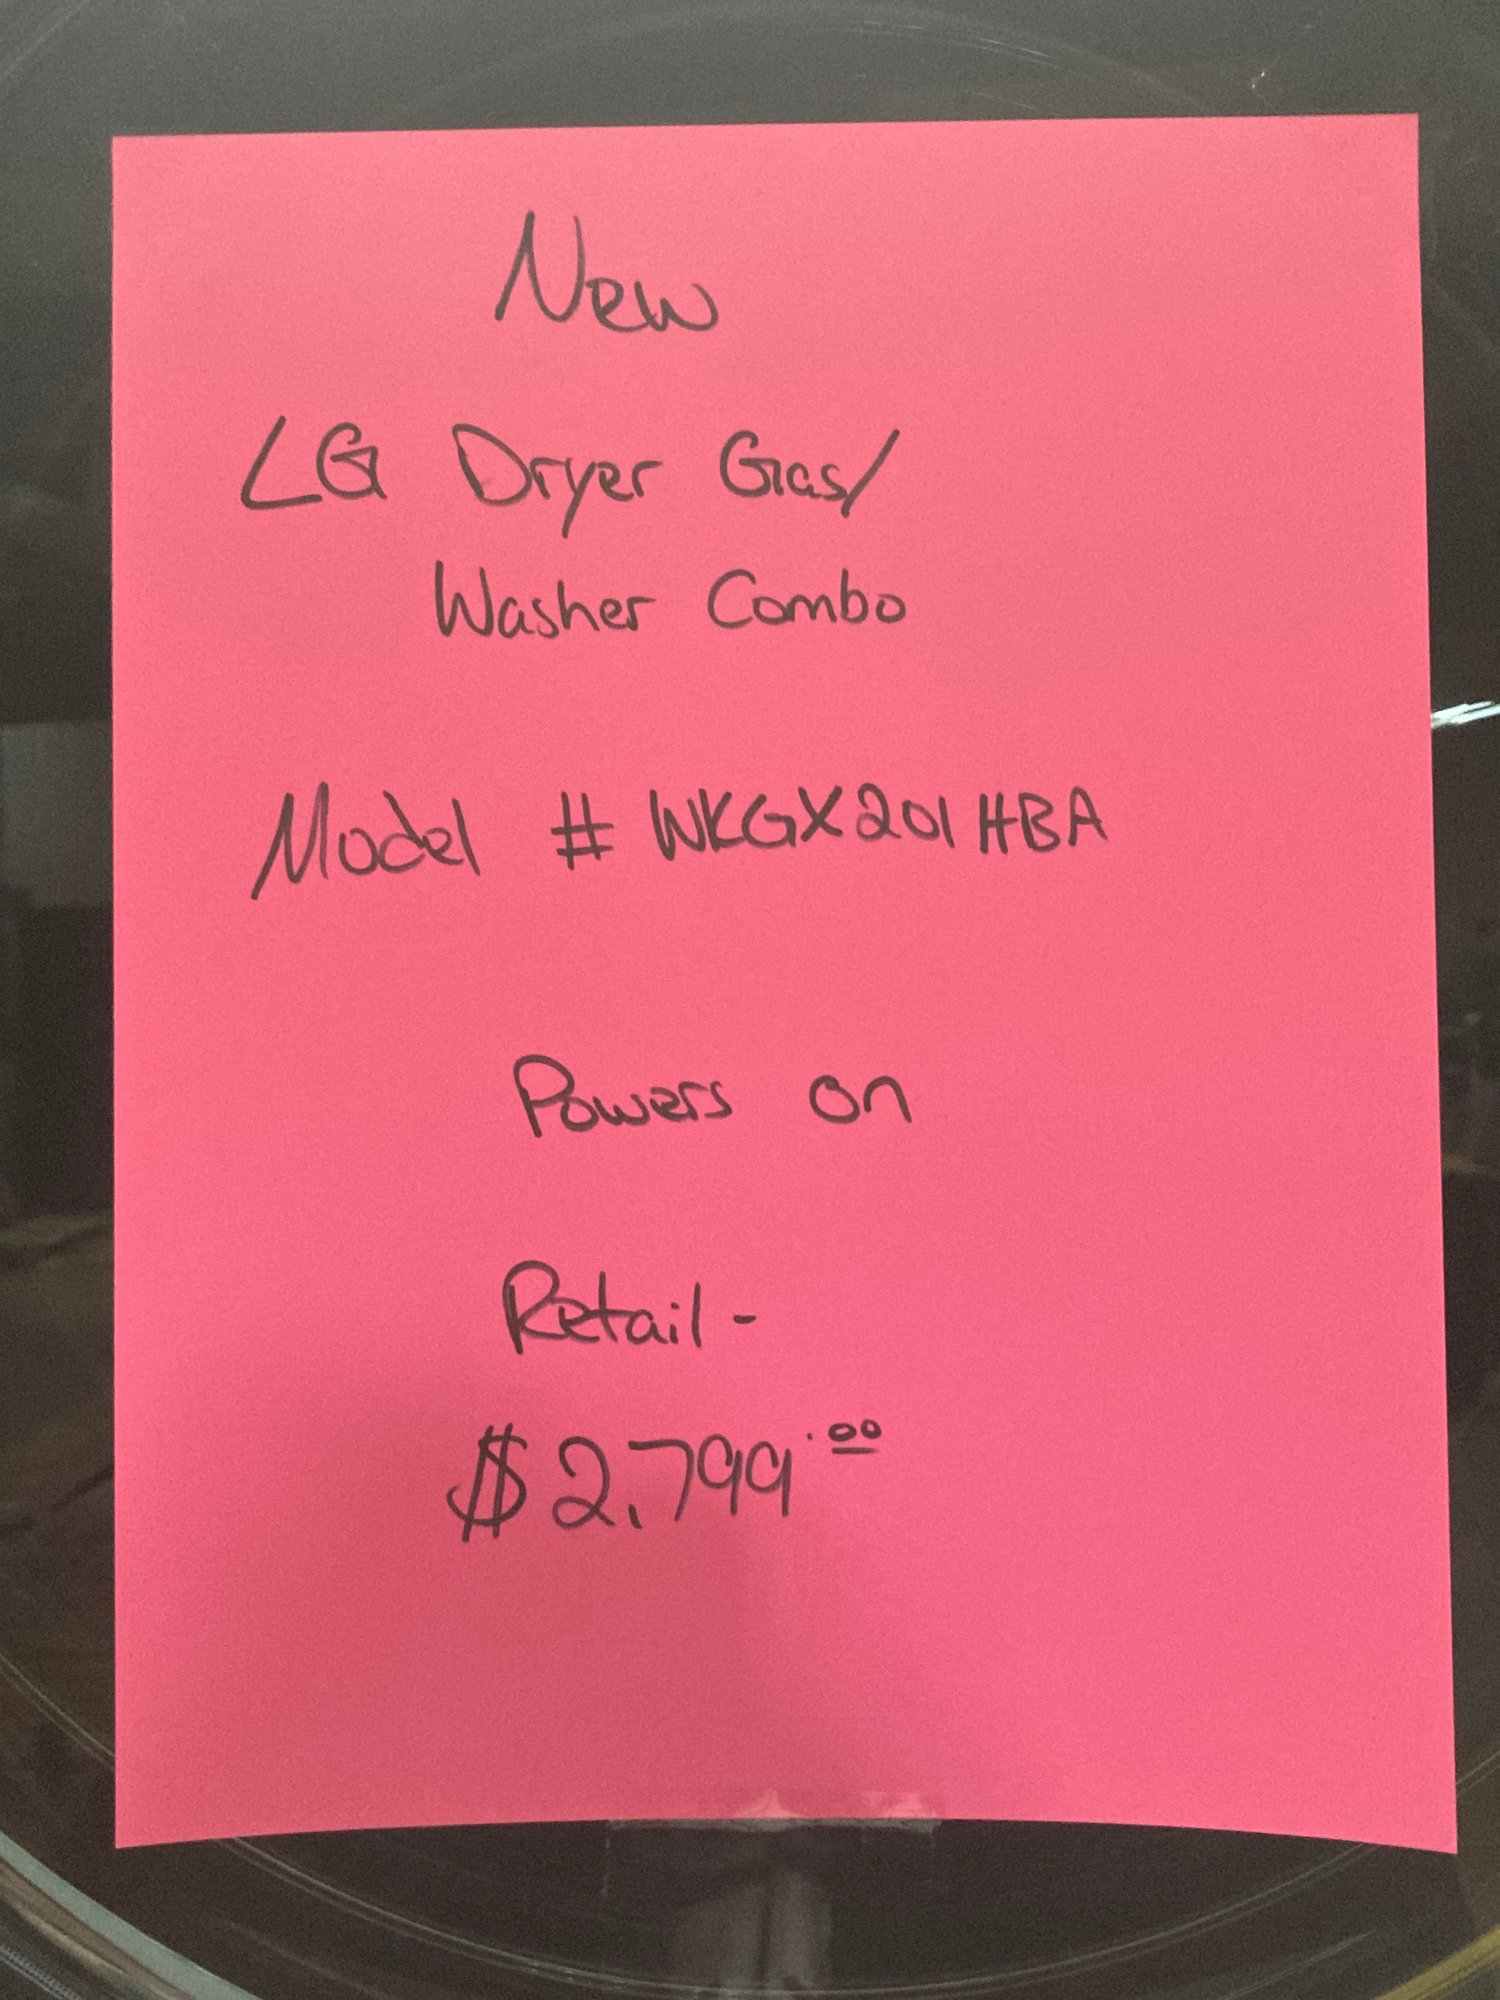 New
LG Dryer Gas/
Washer Combo
Model # WKGX201HBA
Powers on
Retail -
$2,799.00